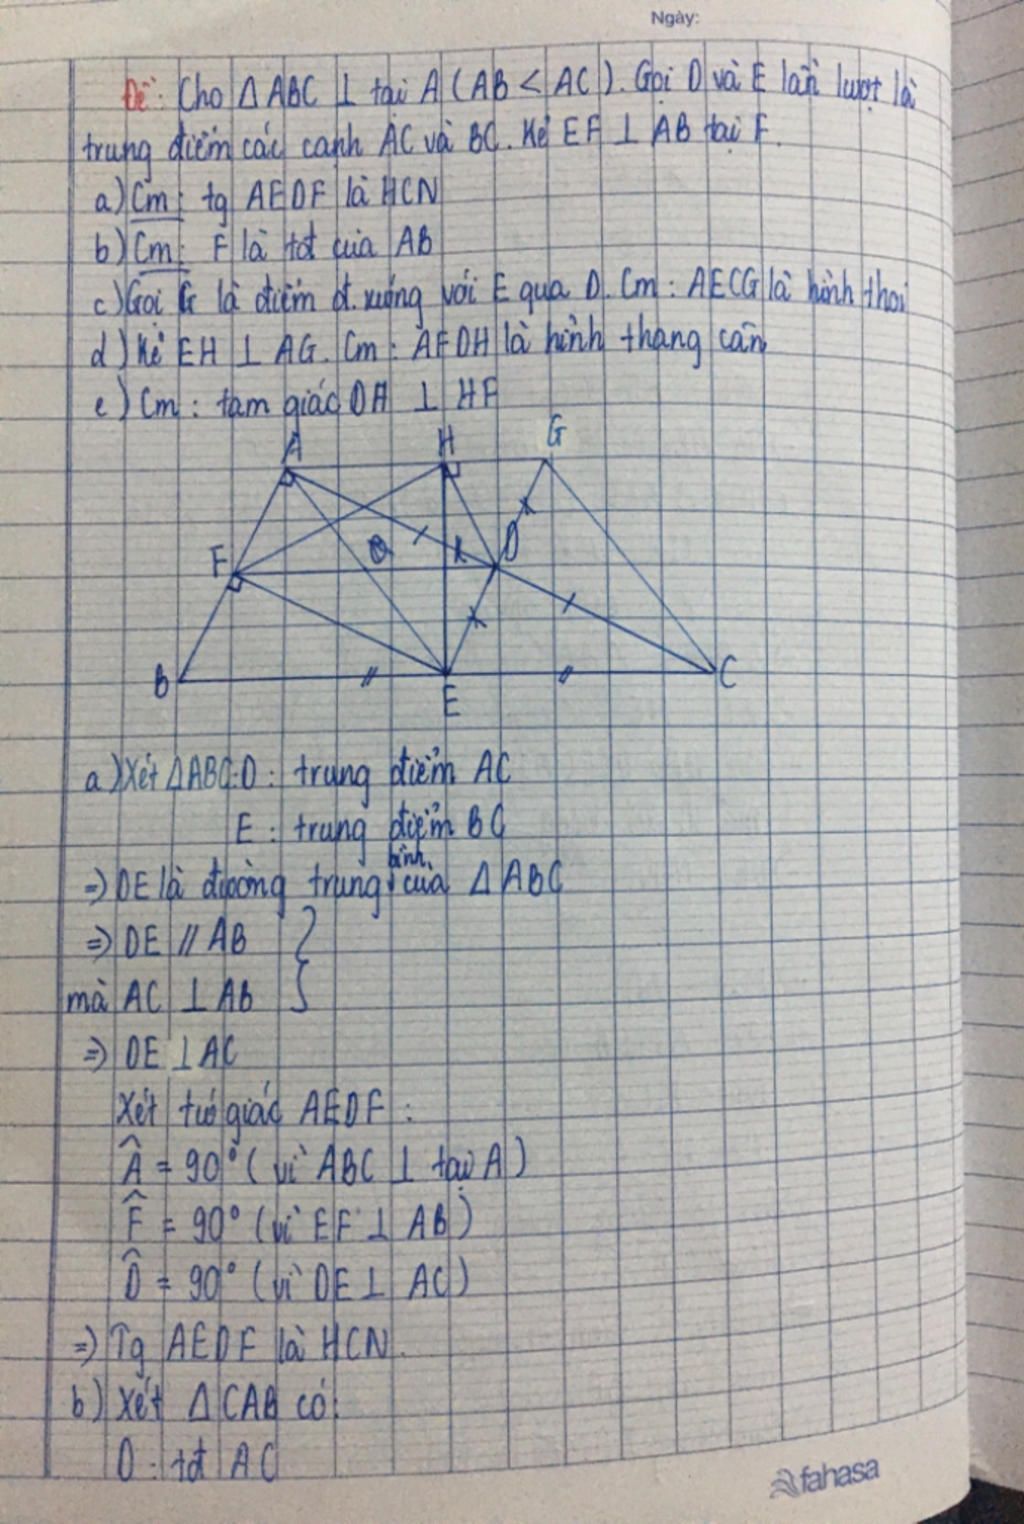 Ngày:
Đề: Cho Δ ABC ⊥ tại A ( AB < AC ). Gọi D và E lần lượt là
trung điểm các cạnh AC và BC. Kẻ EF ⊥ AB tại F.
a) Cm: tg AEDF là HCN
b) Cm: F là tđ của AB
c) Gọi G là điểm đ.xứng với E qua D. Cm: AECG là hình thoi
d) Kẻ EH ⊥ AG. Cm: AFDH là hình thang cân
e) Cm: tam giác DH ⊥ HF
A H G
F D
B E C
a) Xét Δ ABC: D: trung điểm AC
E: trung điểm BC
=> DE là đường trung bình của Δ ABC
=> DE // AB
mà AC ⊥ AB
=> DE ⊥ AC
Xét tứ giác AEDF:
Â = 90° ( vì ABC ⊥ tại A )
F̂ = 90° ( vì EF ⊥ AB )
D̂ = 90° ( vì DE ⊥ AC )
=> Tg AEDF là HCN.
b) Xét Δ CAB có:
D: tđ AC
fahasa